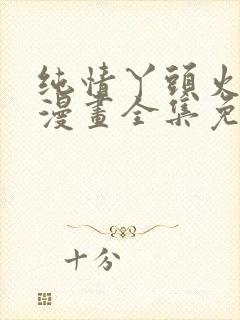 纯情丫頭火
漫畫全集免
十分